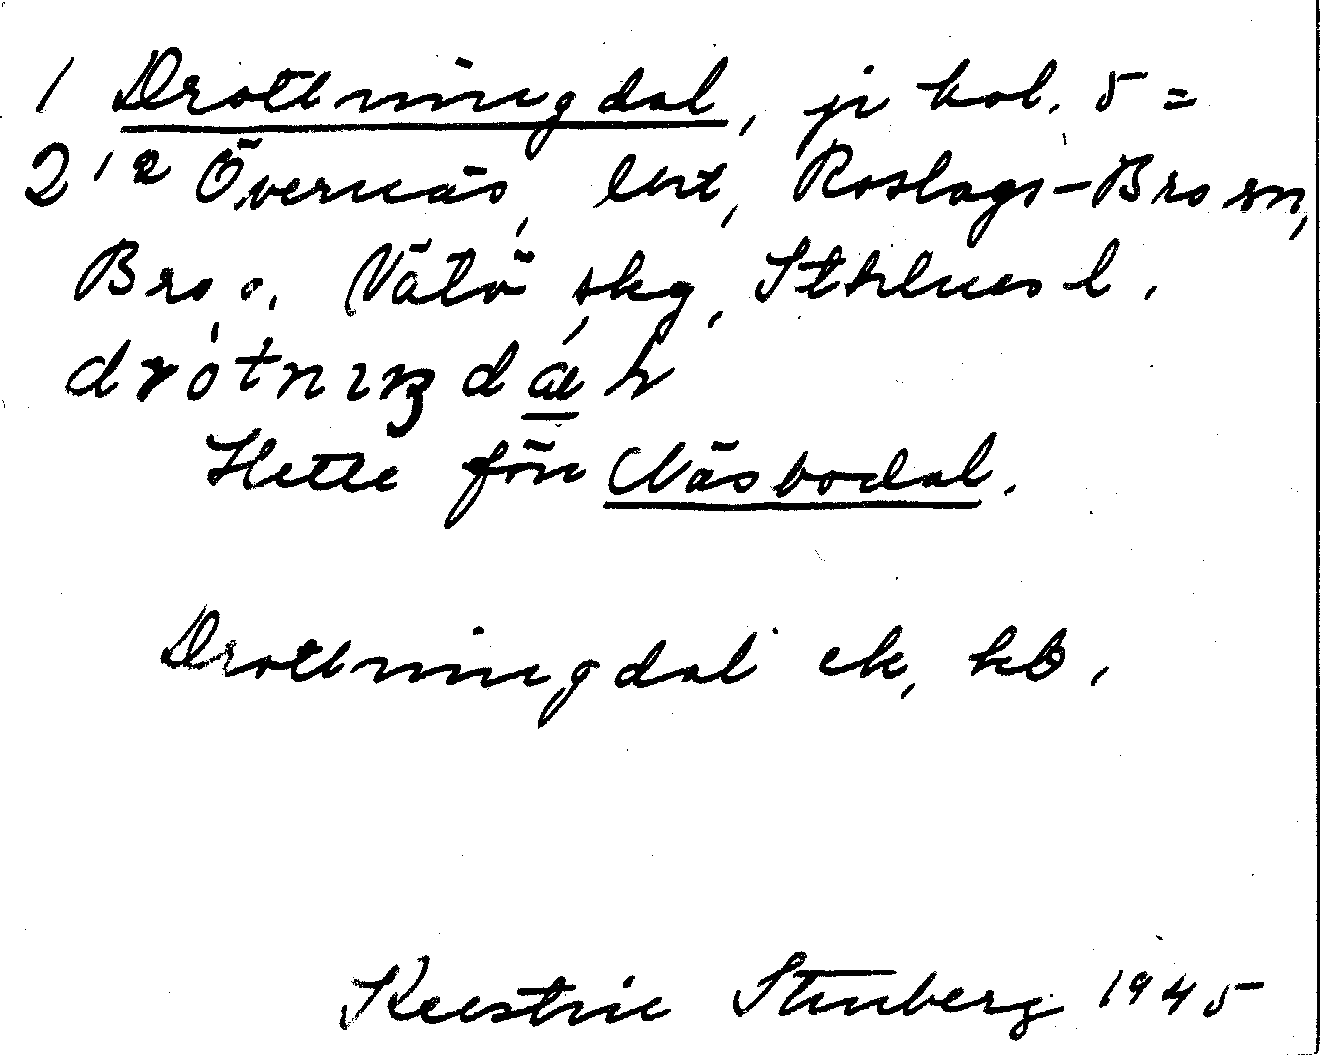 1 Drottningdal, jr kol. 5 =
2 12 Övernäs, lht, Roslags-Bro sn,
Bro o. Vätö skg, Sthlms l.
Hette förr Näsbodal.
Drottningdal ek, kb.
Stenberg 1945